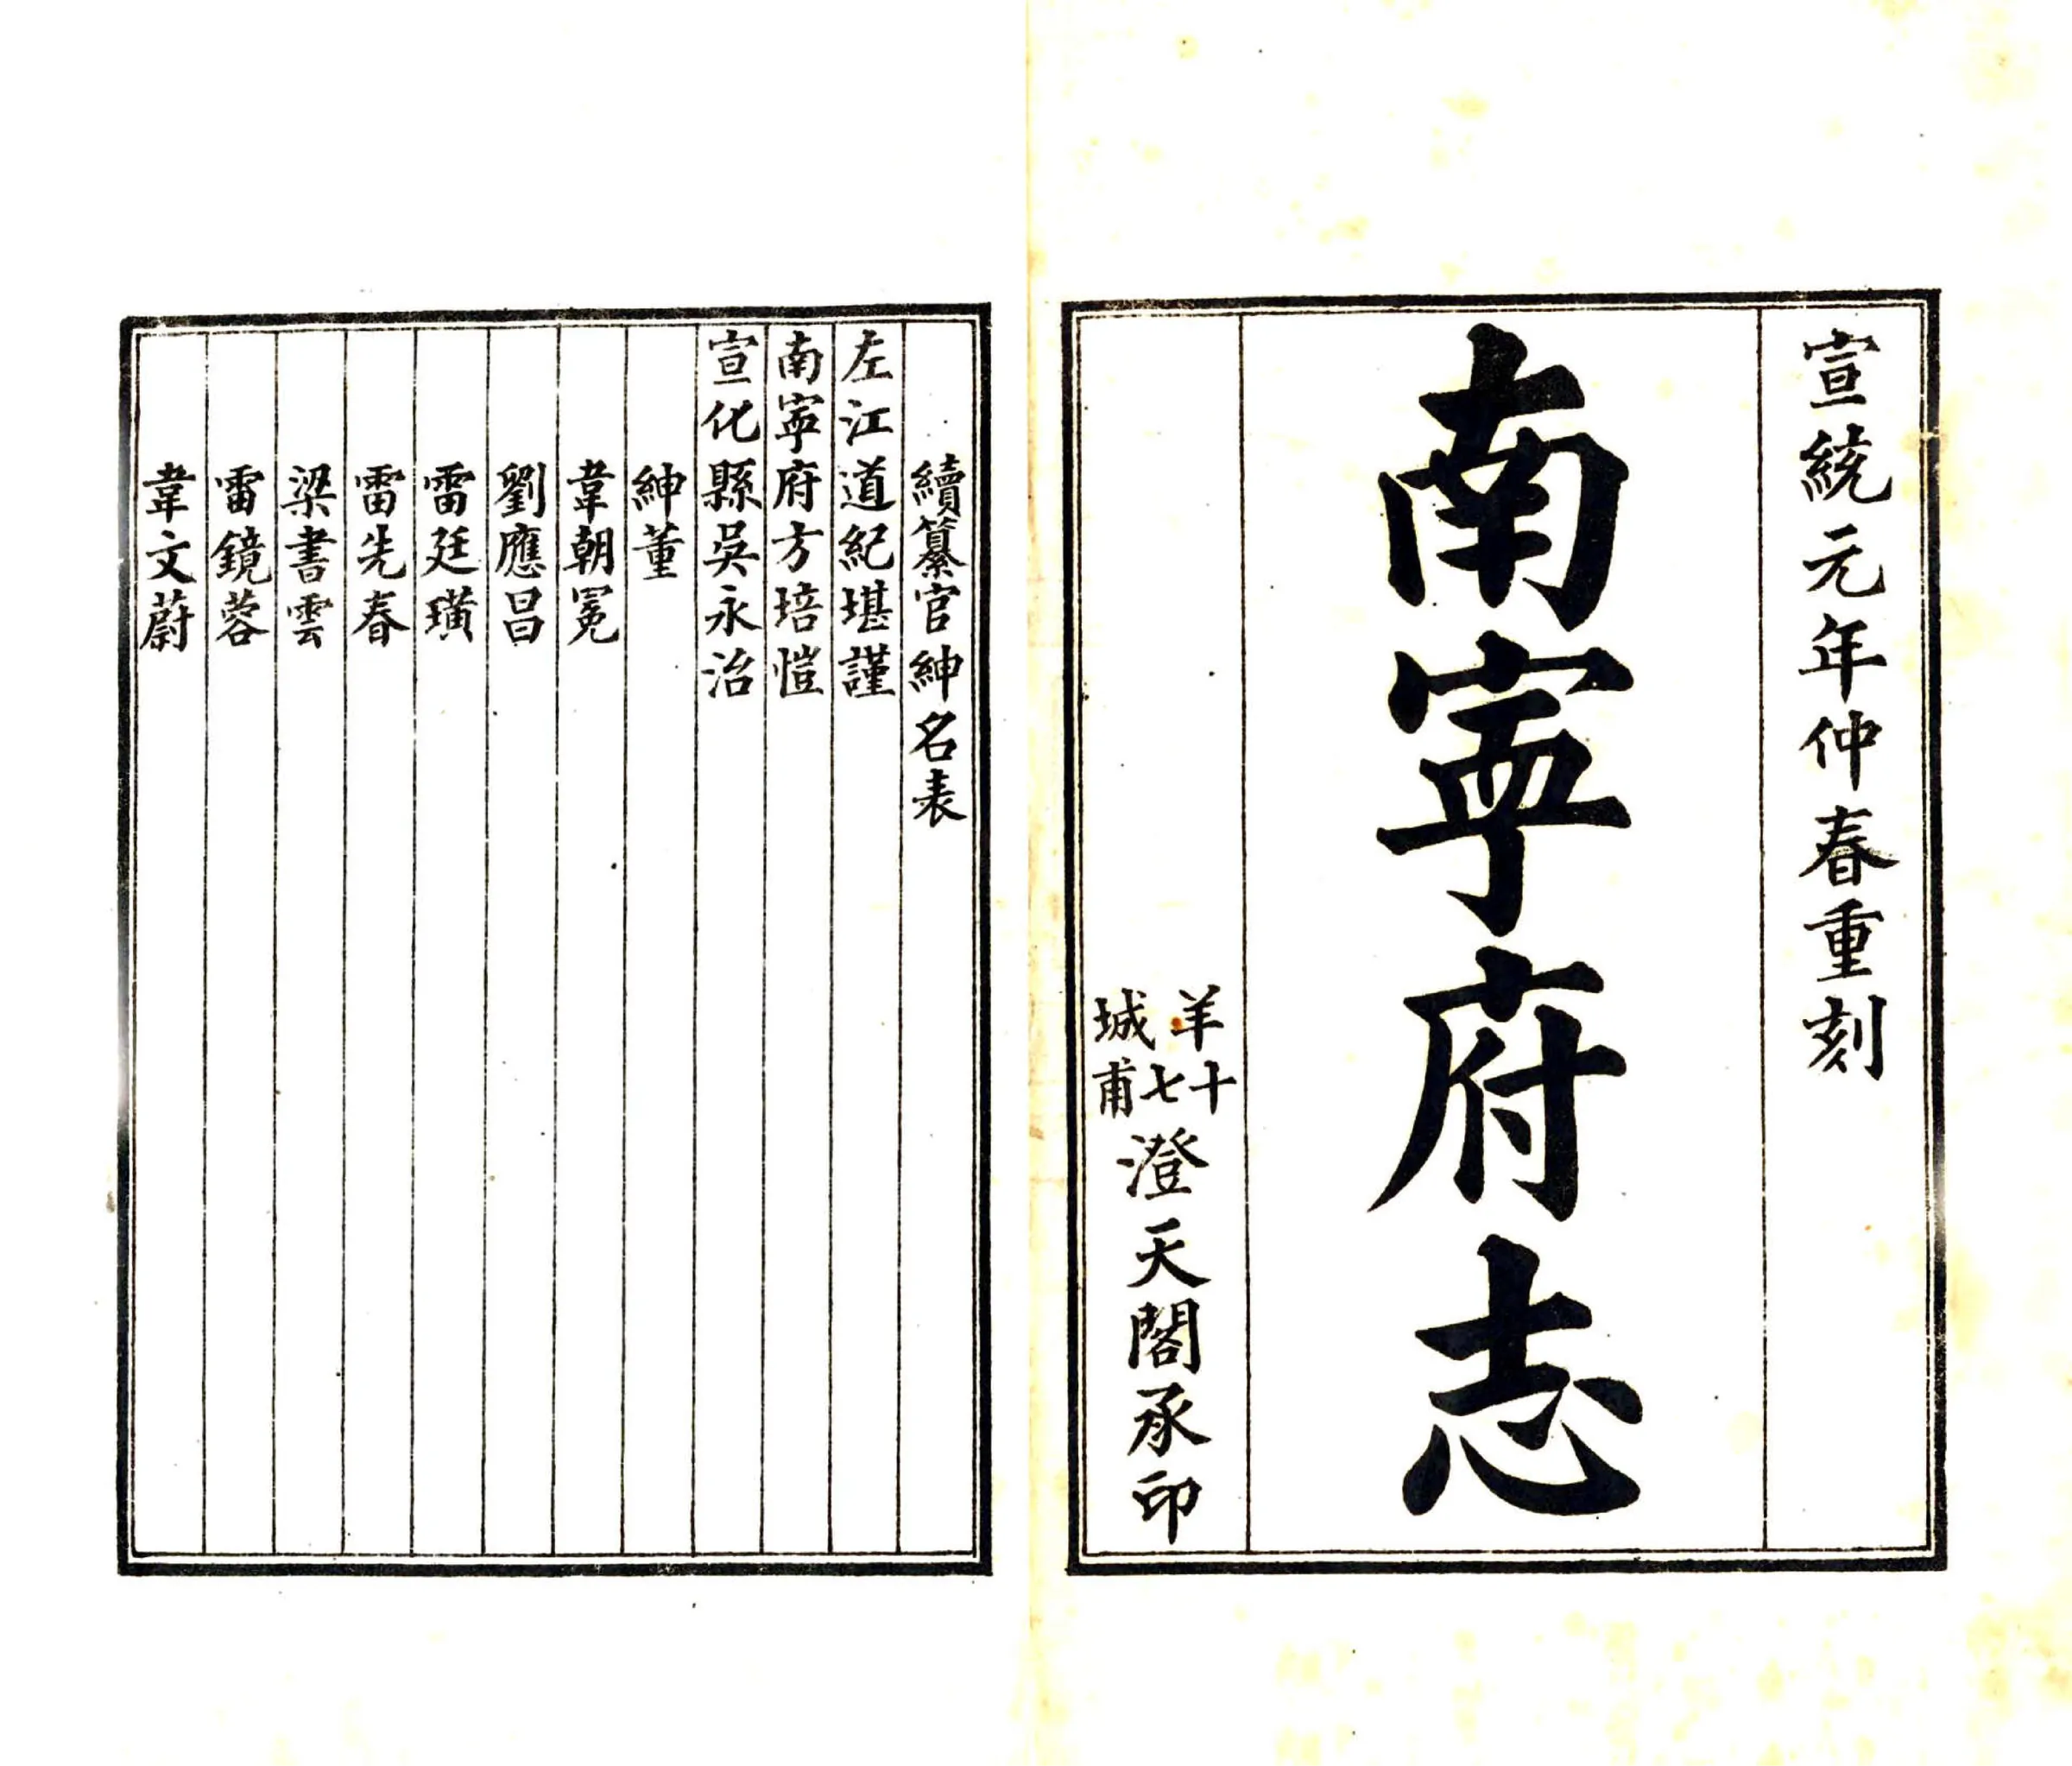 宣統元年仲春重刻
南寧府志
羊城十七甫澄天閣承印
續纂官紳名表
左江道紀堪謹
南寧府方培愷
宣化縣吳永治
紳董
韋朝冕
劉應昌
雷廷璜
雷先春
梁書雲
雷鏡蓉
韋文蔚